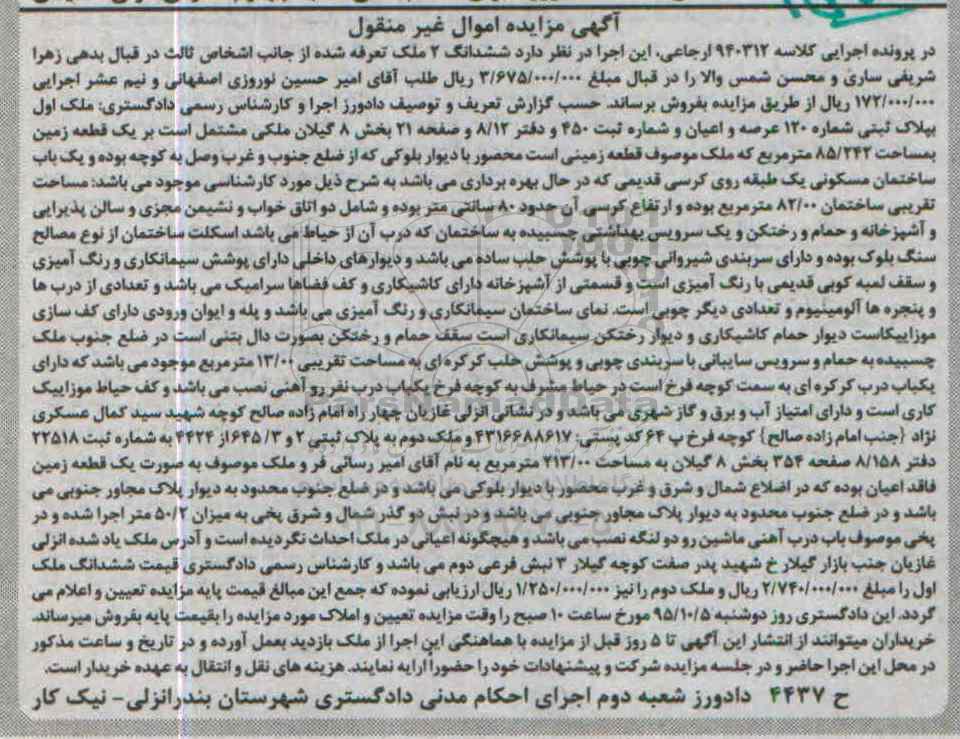 آگهی مزایده اموال غیر منقول
در پرونده اجرایی کلاسه ۹۴۰۳۱۲ ارجاعی، این اجرا در نظر دارد ششدانگ ۲ ملک تعرفه شده از جانب اشخاص ثالث در قبال بدهی زهرا
شریفی ساری و محسن شمس والا را در قبال مبلغ ۳/۶۷۵/۰۰۰/۰۰۰ ریال طلب آقای امیر حسین نوروزی اصفهانی و نیم عشر اجرایی
۱۷۲/۰۰۰/۰۰۰ ریال از طریق مزایده بفروش برساند. حسب گزارش تعریف و توصیف دادورز اجرا و کارشناس رسمی دادگستری: ملک اول
بپلاک ثبتی شماره ۱۲۰ عرصه و اعیان و شماره ثبت ۴۵۰ و دفتر ۸/۱۲ و صفحه ۲۱ بخش ۸ گیلان ملکی مشتمل است بر یک قطعه زمین
بمساحت ۸۵/۲۴۲ مترمربع که ملک موصوف قطعه زمینی است محصور با دیوار بلوکی که از ضلع جنوب و غرب وصل به کوچه بوده و یک باب
ساختمان مسکونی یک طبقه روی کرسی قدیمی که در حال بهره برداری می باشد به شرح ذیل مورد کارشناسی موجود می باشد: مساحت
تقریبی ساختمان ۸۲/۰۰ مترمربع بوده و ارتفاع کرسی آن حدود ۸۰ سانتی متر بوده و شامل دو اتاق خواب و نشیمن مجزی و سالن پذیرایی
و آشپزخانه و حمام و رختکن و یک سرویس بهداشتی چسبیده به ساختمان که درب آن از حیاط می باشد اسکلت ساختمان از نوع مصالح
سنگ بلوک بوده و دارای سربندی شیروانی چوبی با پوشش حلب ساده می باشد و دیوارهای داخلی دارای پوشش سیمانکاری و رنگ آمیزی
و سقف لمبه کوبی قدیمی با رنگ آمیزی است و قسمتی از آشپزخانه دارای کاشیکاری و کف فضاها سرامیک می باشد و تعدادی از درب ها
و پنجره ها آلومینیوم و تعدادی دیگر چوبی است. نمای ساختمان سیمانکاری و رنگ آمیزی می باشد و پله و ایوان ورودی دارای کف سازی
موزاییکاست دیوار حمام کاشیکاری و دیوار رختکن سیمانکاری است سقف حمام و رختکن بصورت دال بتنی است در ضلع جنوب ملک
چسبیده به حمام و سرویس سایبانی با سربندی چوبی و پوشش حلب کرکره ای به مساحت تقریبی ۱۳/۰۰ مترمربع موجود می باشد که دارای
یکباب درب کرکره ای به سمت کوچه فرخ است در حیاط مشرف به کوچه فرخ یکباب درب نفر رو آهنی نصب می باشد و کف حیاط موزاییک
کاری است و دارای امتیاز آب و برق و گاز شهری می باشد و در نشانی انزلی غازیان چهار راه امام زاده صالح کوچه شهید سید کمال عسکری
نژاد {جنب امام زاده صالح} کوچه فرخ پ ۶۴ کد پستی: ۴۳۱۶۶۸۸۶۱۷ و ملک دوم به پلاک ثبتی ۲ و ۳/ ۶۴۵از ۴۴۲۴ به شماره ثبت ۲۲۵۱۸
دفتر ۸/۱۵۸ صفحه ۳۵۴ بخش ۸ گیلان به مساحت ۲۱۳/۰۰ مترمربع به نام آقای امیر رسائی فر و ملک موصوف به صورت یک قطعه زمین
فاقد اعیان بوده که در اضلاع شمال و شرق و غرب محصور با دیوار بلوکی می باشد و در ضلع جنوب محدود به دیوار پلاک مجاور جنوبی می
باشد و در ضلع جنوب محدود به دیوار پلاک مجاور جنوبی می باشد و در نبش دو گذر شمال و شرق پخی به میزان ۵۰/۲ متر اجرا شده و در
پخی موصوف باب درب آهنی ماشین رو دو لنگه نصب می باشد و هیچگونه اعیانی در ملک احداث نگردیده است و آدرس ملک یاد شده انزلی
غازیان جنب بازار گیلار خ شهید پدر صفت کوچه گیلار ۳ نبش فرعی دوم می باشد و کارشناس رسمی دادگستری قیمت ششدانگ ملک
اول را مبلغ ۲/۷۴۰/۰۰۰/۰۰۰ ریال و ملک دوم را نیز ۱/۲۵۰/۰۰۰/۰۰۰ ریال ارزیابی نموده که جمع این مبالغ قیمت پایه مزایده تعیین و اعلام می
گردد. این دادگستری روز دوشنبه ۹۵/۱۰/۵ مورخ ساعت ۱۰ صبح را وقت مزایده تعیین و املاک مورد مزایده را بقیمت پایه بفروش میرساند.
خریداران میتوانند از انتشار این آگهی تا ۵ روز قبل از مزایده با هماهنگی این اجرا از ملک بازدید بعمل آورده و در تاریخ و ساعت مذکور
در محل این اجرا حاضر و در جلسه مزایده شرکت و پیشنهادات خود را حضوراً ارایه نمایند. هزینه های نقل و انتقال به عهده خریدار است.
ح ۴۴۳۷ دادورز شعبه دوم اجرای احکام مدنی دادگستری شهرستان بندرانزلی- نیک کار
ParsNamadData